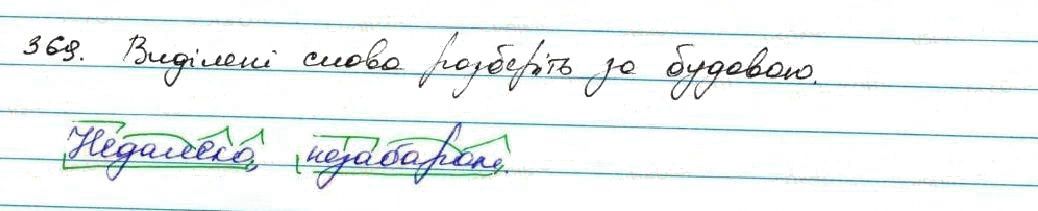 369. Виділені слова розберіть за будовою.
Недалеко, незабаром.